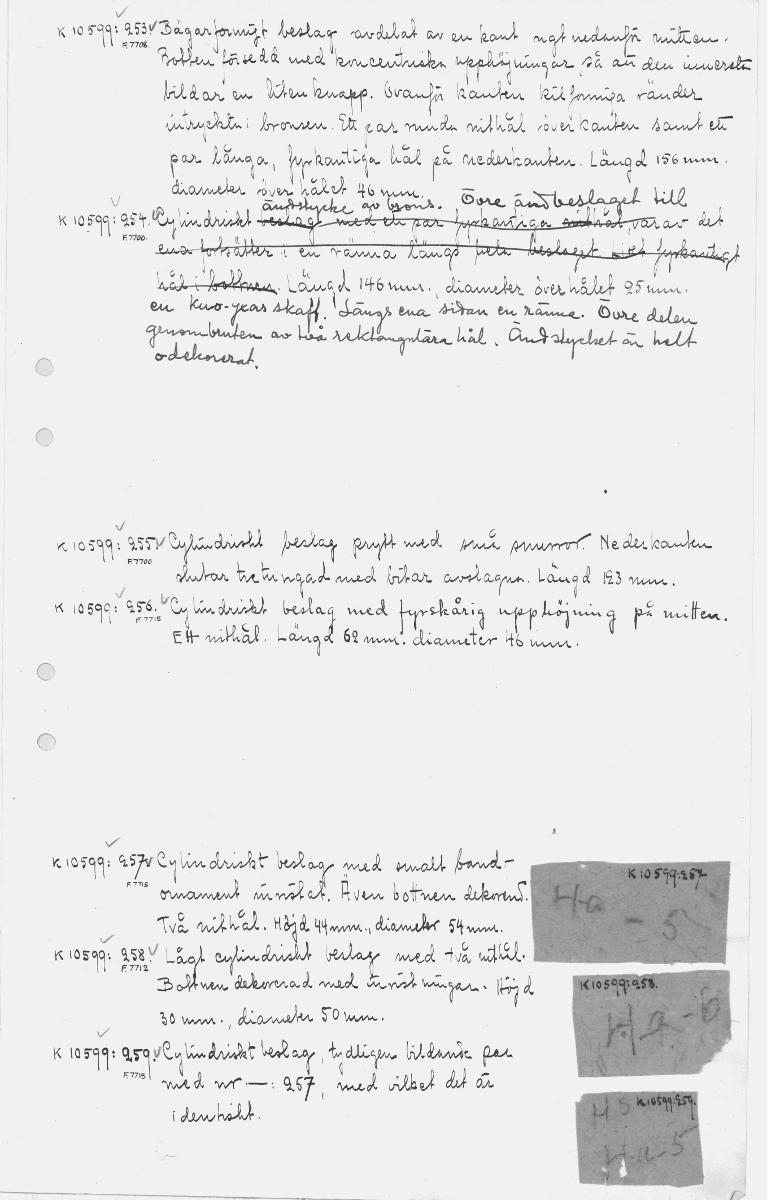 K 10599: 253. Bägarformigt beslag avdelat av en kant ngt nedanför mitten.
F. 7708. Botten försedd med koncentriska upphöjningar så att den innersta
bildar en liten knapp. Ovanför kanten kilformiga ränder
intryckta i bronsen. Ett par runda nithål över kanten samt ett
par långa, fyrkantiga hål på nederkanten. Längd 156 mm.
diameter över hålet 46 mm.
ändstycke av brons. Övre ändbeslaget till
K 10599: 254. Cylindriskt beslag med ett par fyrkantiga nithål, varav det
F. 7700. ena fortsätter i en ränna längs hela beslaget fyrkantigt
hål i bottnen. Längd 146 mm., diameter över hålet 25 mm.
en kuo-yxas skaff. Längs ena sidan en ränna. Övre delen
genombruten av två rektangulära hål. Ändstycket är helt
odekorerat.
K 10599: 255. Cylindriskt beslag prytt med små snurror. Nederkanten
F. 7700 slutar tretungad med bitar avslagna. Längd 123 mm.
K 10599: 256. Cylindriskt beslag med fyrskårig upphöjning på mitten.
F. 7715 Ett nithål. Längd 62 mm. diameter 46 mm.
K 10599: 257 Cylindriskt beslag med smalt band-
F. 7715 ornament inristat. Även bottnen dekorerad.
Två nithål. Höjd 44 mm., diameter 54 mm.
K 10599: 258. Lågt cylindriskt beslag med två nithål.
F. 7712. Bottnen dekorerad med inristningar. Höjd
30 mm., diameter 50 mm.
K 10599: 259. Cylindriskt beslag, tydligen bildande par
F. 7715 med nr —: 257, med vilket det är
identiskt.
K 10599:257
Ha - 5
K 10599:258.
Ha - 6
K 10599:259.
HS
Ha-5